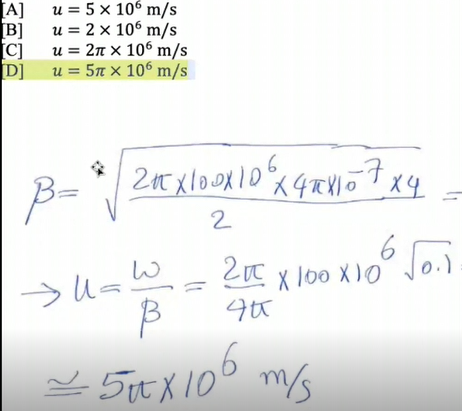 [A] u = 5 × 10⁶ m/s
[B] u = 2 × 10⁶ m/s
[C] u = 2π × 10⁶ m/s
[D] u = 5π × 10⁶ m/s
β = √((2π×100×10⁶×4π×10⁻⁷×4)/2) =
→ u = ω/β = 2π/4π × 100 × 10⁶ √0.1
≅ 5π×10⁶ m/s